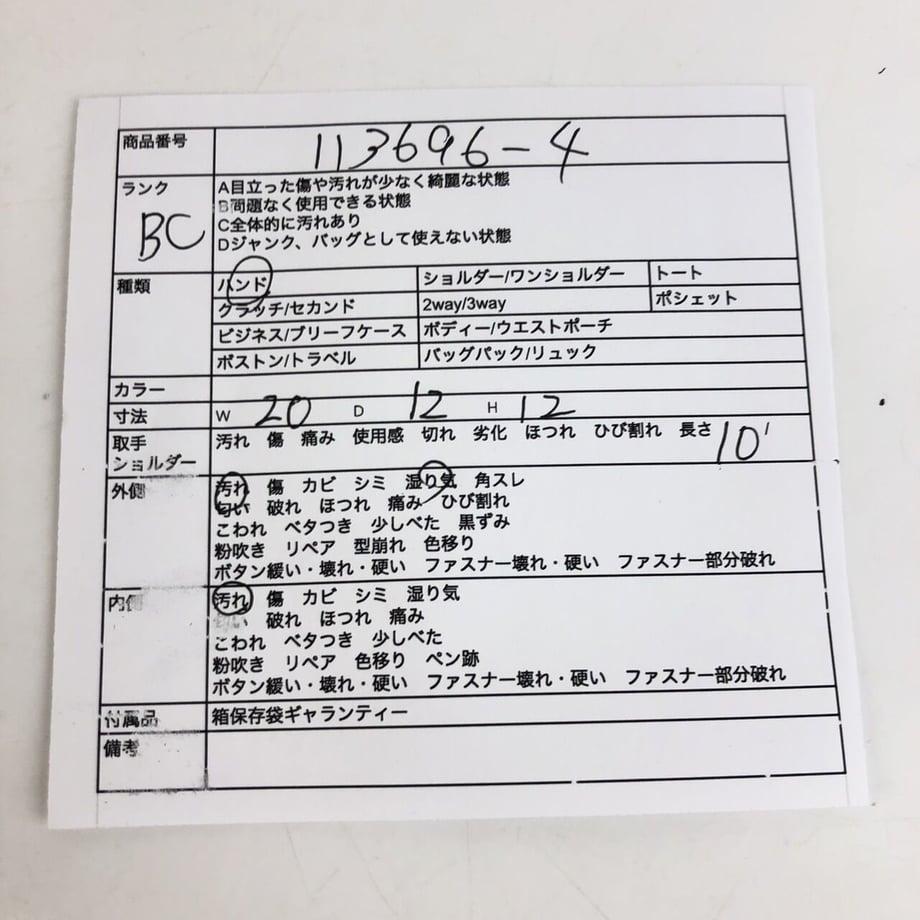 商品番号 113696-4
ランク BC
A目立った傷や汚れが少なく綺麗な状態
B問題なく使用できる状態
C全体的に汚れあり
Dジャンク、バッグとして使えない状態
種類 ハンド ショルダー/ワンショルダー トート
クラッチ/セカンド 2way/3way ポシェット
ビジネス/ブリーフケース ボディー/ウエストポーチ
ボストン/トラベル バッグパック/リュック
カラー
寸法 W 20 D 12 H 12
取手 汚れ 傷 痛み 使用感 切れ 劣化 ほつれ ひび割れ 長さ 10
ショルダー
外側 汚れ 傷 カビ シミ 湿り気 角スレ
匂い 破れ ほつれ 痛み ひび割れ
こわれ ベタつき 少しべた 黒ずみ
粉吹き リペア 型崩れ 色移り
ボタン緩い・壊れ・硬い ファスナー壊れ・硬い ファスナー部分破れ
内側 汚れ 傷 カビ シミ 湿り気
匂い 破れ ほつれ 痛み
こわれ ベタつき 少しべた
粉吹き リペア 色移り ペン跡
ボタン緩い・壊れ・硬い ファスナー壊れ・硬い ファスナー部分破れ
付属品 箱保存袋ギャランティー
備考